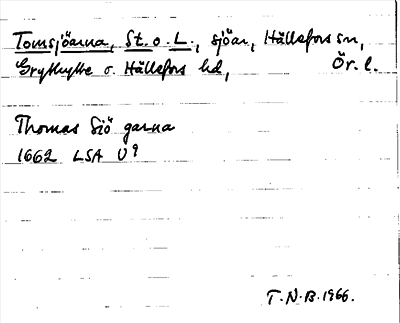 Tomsjöarna, St. o. L., sjöar, Hällefors sn,
Grythytte o. Hällefors hd, Ör. l.
Thomas Siö garna
1662 LSA U9
T.N.B. 1966.